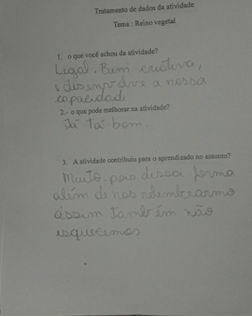 Tratamento de dados da atividade
Tema : Reino vegetal
1. o que você achou da atividade?
Legal, Bem criativa,
e desenvolve a nossa
capacidade.
2.- o que pode melhorar na atividade?
Já tá bom.
3. A atividade contribuiu para o aprendizado no assunto?
Muito, pois dessa forma
além de nos relembrarmo
assim também não
esquecemos